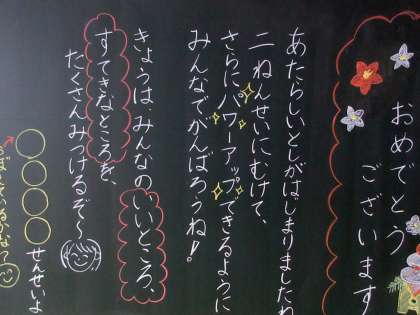 おめでとう
ございます
あたらしいとしがはじまりましたね
二ねんせいにむけて、
さらにパワーアップできるように
みんなでがんばろうね!
きょうは、みんなのいいところ、
すてきなところを、
たくさんみつけるぞ〜
○○○○せんせいよ
ぼえているかな?